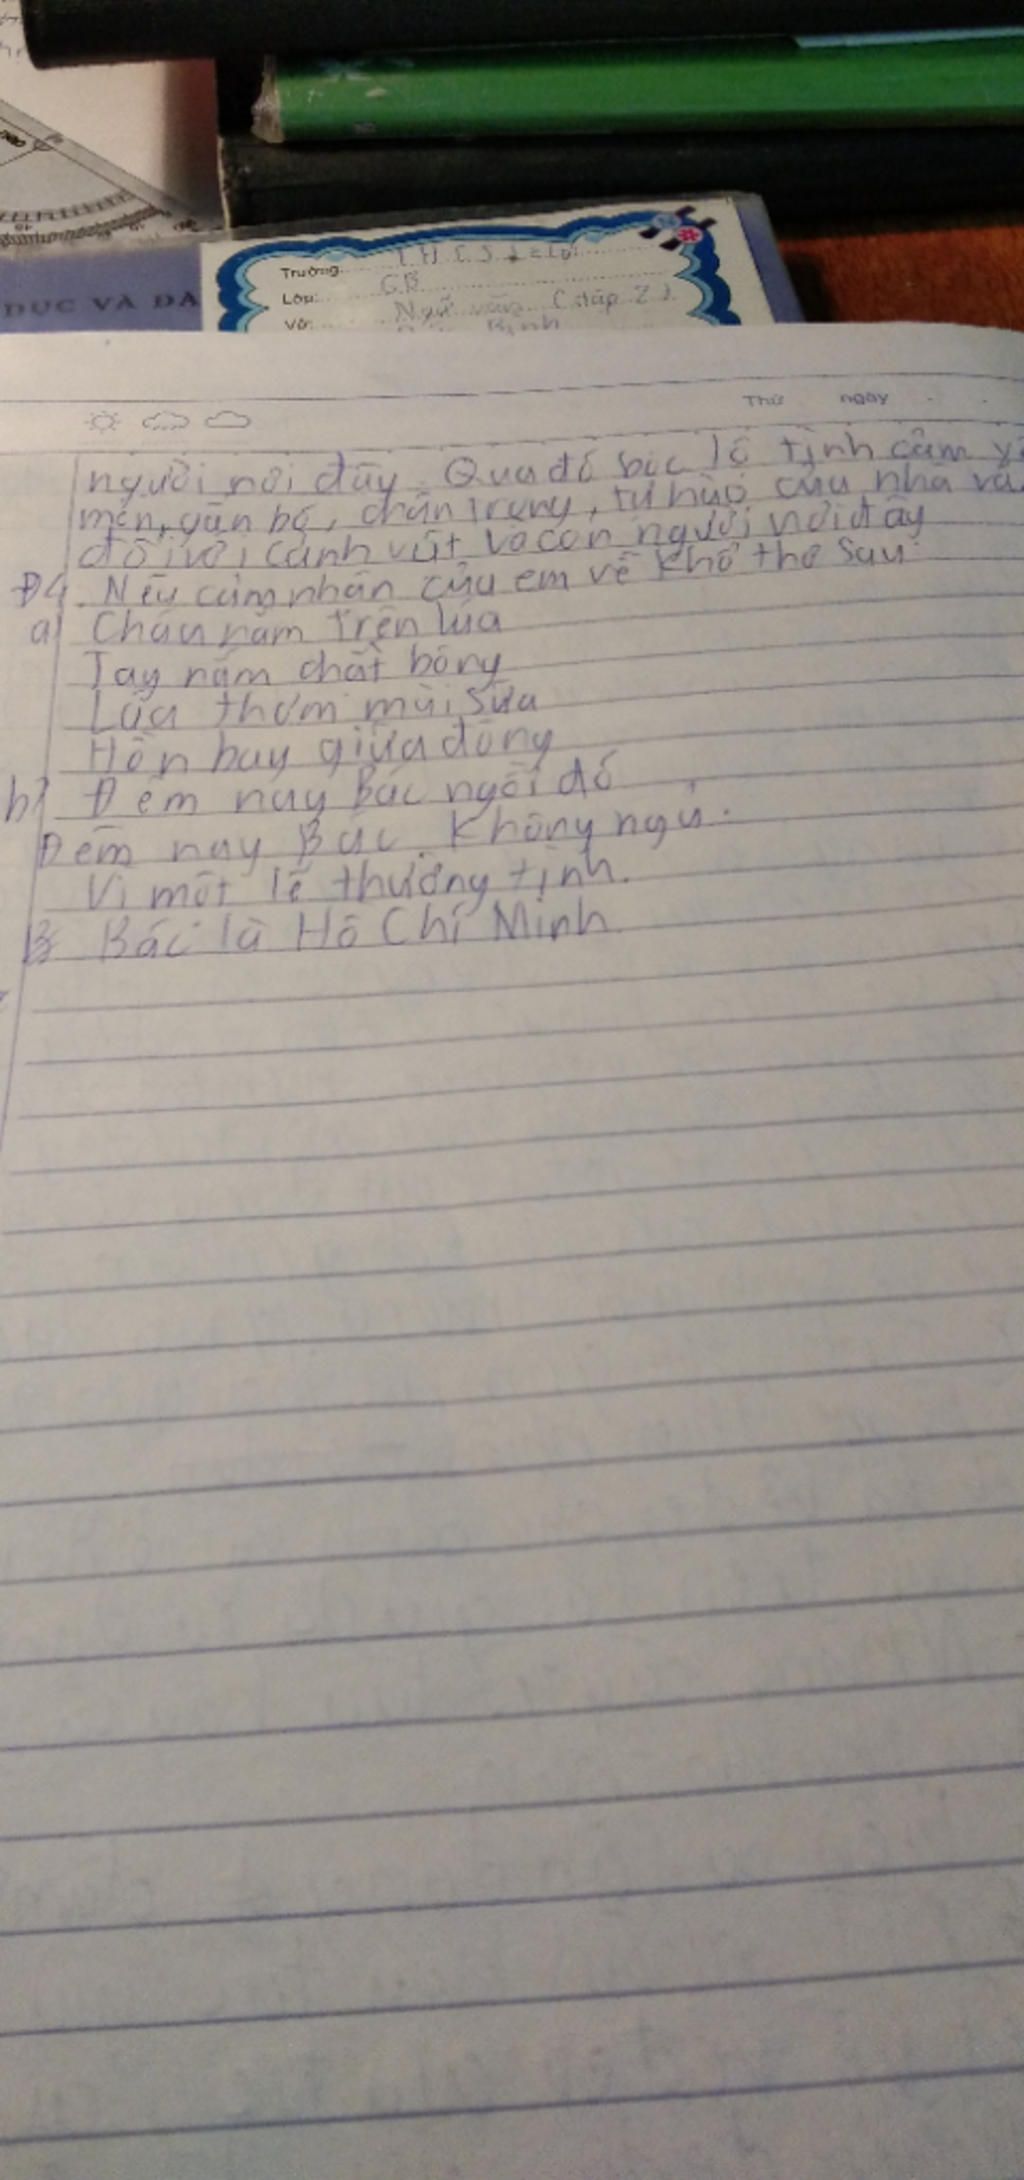 Trường: THCS
Lớp: 6B
Vở: Ngữ văn (tập 2).
Bình
DỤC VÀ ĐÀ
Thứ ngày
người nơi đây. Qua đó bộc lộ tình cảm yê
mến, gắn bó, chân trọng, tự hào của nhà vă
đối với cảnh vật và con người nơi đây
Đ4. Nêu cảm nhận của em về khổ thơ sau:
a) Cháu nằm trên lúa
Tay nắm chặt bông
Lúa thơm mùi sữa
Hồn bay giữa đồng
b) Đêm nay Bác ngồi đó
Đêm nay Bác không ngủ.
Vì một lẽ thường tình.
Bác là Hồ Chí Minh.